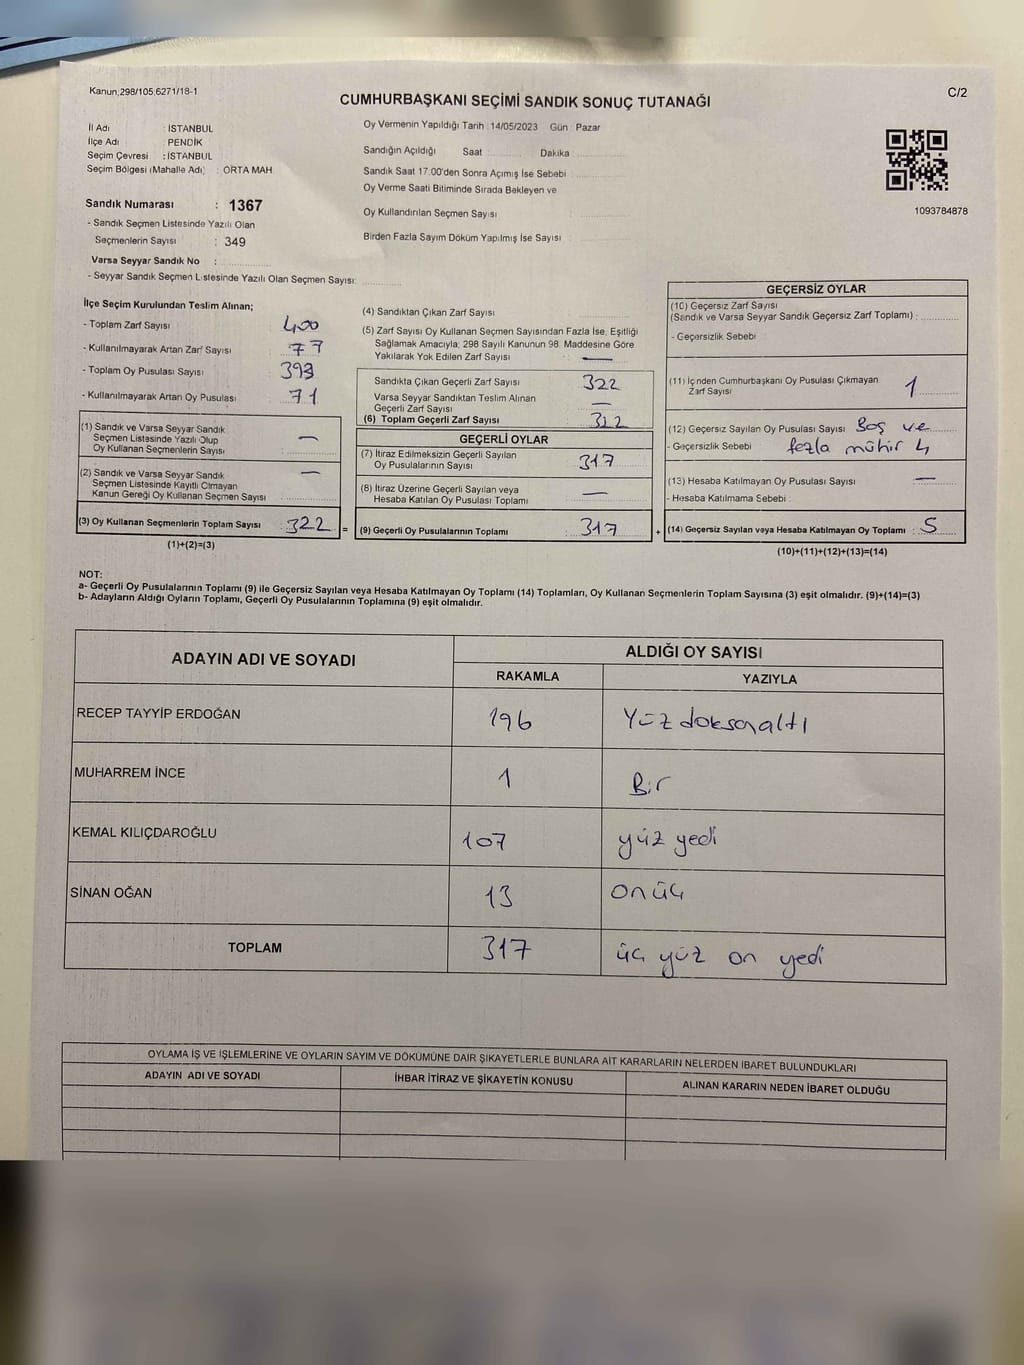 Kanun;298/105,6271/18-1
C/2
CUMHURBAŞKANI SEÇİMİ SANDIK SONUÇ TUTANAĞI
İl Adı : İSTANBUL
İlçe Adı : PENDİK
Seçim Çevresi : İSTANBUL
Seçim Bölgesi (Mahalle Adı) : ORTA MAH
Sandık Numarası : 1367
- Sandık Seçmen Listesinde Yazılı Olan
Seçmenlerin Sayısı : 349
Varsa Seyyar Sandık No :
- Seyyar Sandık Seçmen Listesinde Yazılı Olan Seçmen Sayısı:
Oy Vermenin Yapıldığı Tarih :14/05/2023 Gün : Pazar
Sandığın Açıldığı Saat : Dakika :
Sandık Saat 17.00'den Sonra Açımış İse Sebebi :
Oy Verme Saati Bitiminde Sırada Bekleyen ve
Oy Kullandırılan Seçmen Sayısı :
Birden Fazla Sayım Döküm Yapılmış İse Sayısı :
1093784878
İlçe Seçim Kurulundan Teslim Alınan;
- Toplam Zarf Sayısı : 400
- Kullanılmayarak Artan Zarf Sayısı : 77
- Toplam Oy Pusulası Sayısı : 393
- Kullanılmayarak Artan Oy Pusulası : 71
(1) Sandık ve Varsa Seyyar Sandık
Seçmen Listesinde Yazılı Olup
Oy Kullanan Seçmenlerin Sayısı : —
(2) Sandık ve Varsa Seyyar Sandık
Seçmen Listesinde Kayıtlı Olmayan
Kanun Gereği Oy Kullanan Seçmen Sayısı : —
(3) Oy Kullanan Seçmenlerin Toplam Sayısı : 322 =
(1)+(2)=(3)
(4) Sandıktan Çıkan Zarf Sayısı :
(5) Zarf Sayısı Oy Kullanan Seçmen Sayısından Fazla İse, Eşitliği
Sağlamak Amacıyla; 298 Sayılı Kanunun 98. Maddesine Göre
Yakılarak Yok Edilen Zarf Sayısı : —
Sandıkta Çıkan Geçerli Zarf Sayısı : 322
Varsa Seyyar Sandıktan Teslim Alınan
Geçerli Zarf Sayısı : —
(6) Toplam Geçerli Zarf Sayısı : 322
GEÇERLİ OYLAR
(7) İtiraz Edilmeksizin Geçerli Sayılan
Oy Pusulalarının Sayısı : 317
(8) İtiraz Üzerine Geçerli Sayılan veya
Hesaba Katılan Oy Pusulası Toplamı : —
(9) Geçerli Oy Pusulalarının Toplamı : 317 +
GEÇERSİZ OYLAR
(10) Geçersiz Zarf Sayısı
(Sandık ve Varsa Seyyar Sandık Geçersiz Zarf Toplamı) :
- Geçersizlik Sebebi :
(11) İçinden Cumhurbaşkanı Oy Pusulası Çıkmayan
Zarf Sayısı : 1
(12) Geçersiz Sayılan Oy Pusulası Sayısı : Boş ve
- Geçersizlik Sebebi : fezla mühir 4
(13) Hesaba Katılmayan Oy Pusulası Sayısı : —
- Hesaba Katılmama Sebebi :
(14) Geçersiz Sayılan veya Hesaba Katılmayan Oy Toplamı : 5
(10)+(11)+(12)+(13)=(14)
NOT:
a- Geçerli Oy Pusulalarının Toplamı (9) ile Geçersiz Sayılan veya Hesaba Katılmayan Oy Toplamı (14) Toplamları, Oy Kullanan Seçmenlerin Toplam Sayısına (3) eşit olmalıdır. (9)+(14)=(3)
b- Adayların Aldığı Oyların Toplamı, Geçerli Oy Pusulalarının Toplamına (9) eşit olmalıdır.
ADAYIN ADI VE SOYADI
ALDIĞI OY SAYISI
RAKAMLA YAZIYLA
RECEP TAYYİP ERDOĞAN 196 Yüz doksanaltı
MUHARREM İNCE 1 Bir
KEMAL KILIÇDAROĞLU 107 yüz yedi
SİNAN OĞAN 13 on üç
TOPLAM 317 üç yüz on yedi
OYLAMA İŞ VE İŞLEMLERİNE VE OYLARIN SAYIM VE DÖKÜMÜNE DAİR ŞİKAYETLERLE BUNLARA AİT KARARLARIN NELERDEN İBARET BULUNDUKLARI
ADAYIN ADI VE SOYADI İHBAR İTİRAZ VE ŞİKAYETİN KONUSU ALINAN KARARIN NEDEN İBARET OLDUĞU